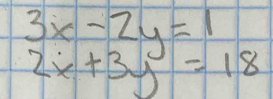 3x - 2y = 1
2x + 3y = 18